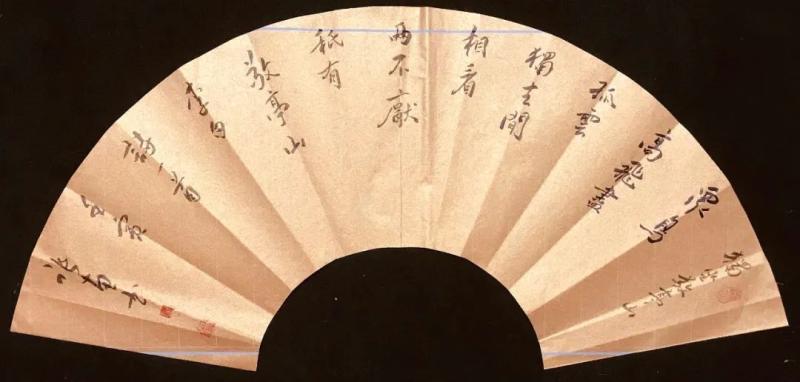 獨坐敬亭山
眾鳥
高飛盡
孤雲
獨去閒
相看
兩不厭
祇有
敬亭山
李白
詩一首